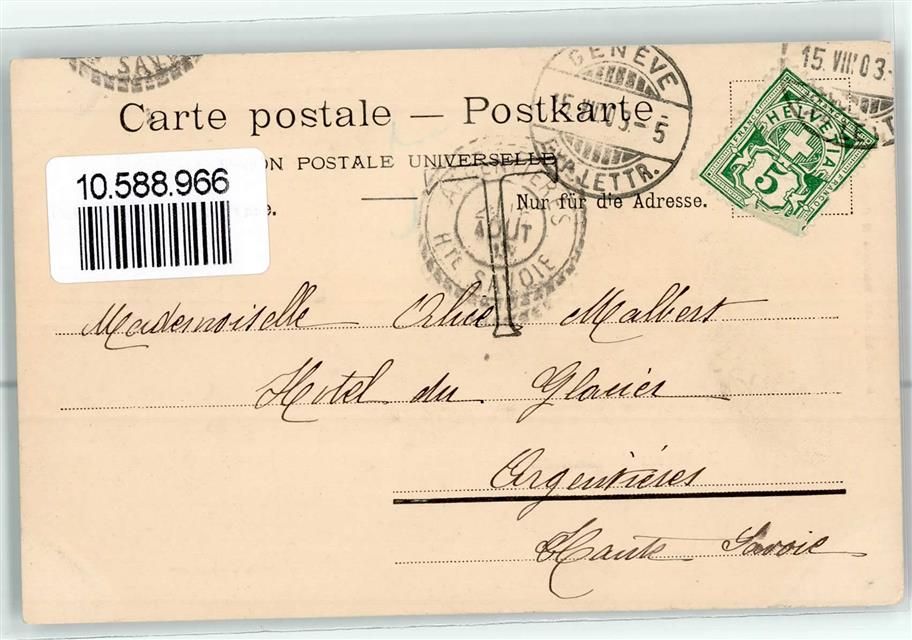 SAV
GENÈVE
15.VIII.03.-5
EXP. LETTR.
15.VIII.03.-
FRANCO
HELVETIA
5
Carte postale — Postkarte
ON POSTALE UNIVERSELLE
10.588.966
e.
Nur für die Adresse.
T
AOUT
HTE SAVOIE
Mademoiselle Malbert
Hotel du Glacier
Argentières
Haute Savoie